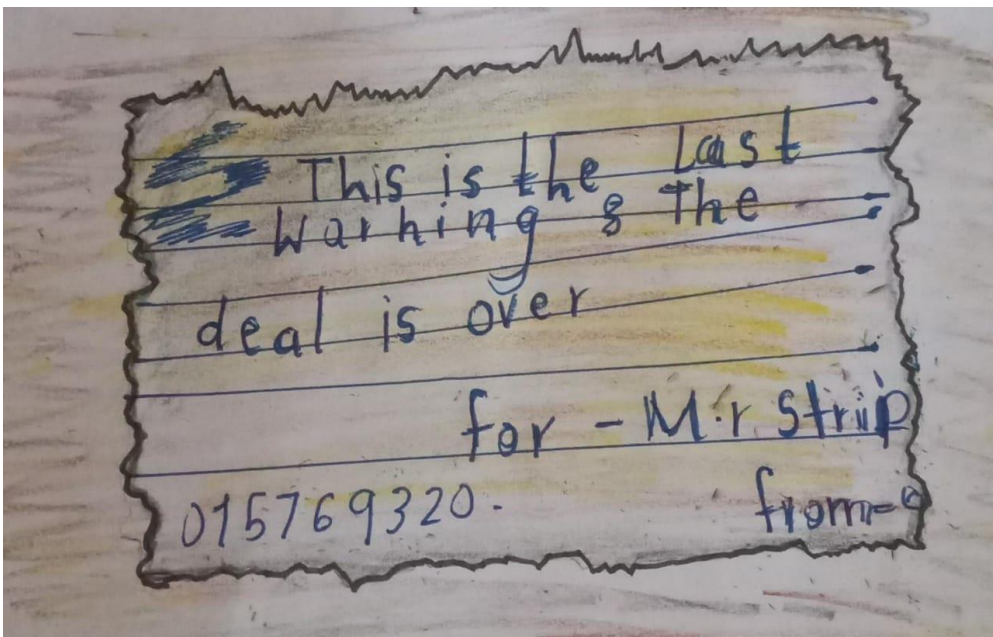 This is the Last
Warning & The
deal is over
for - M.r Strip
015769320.
from-